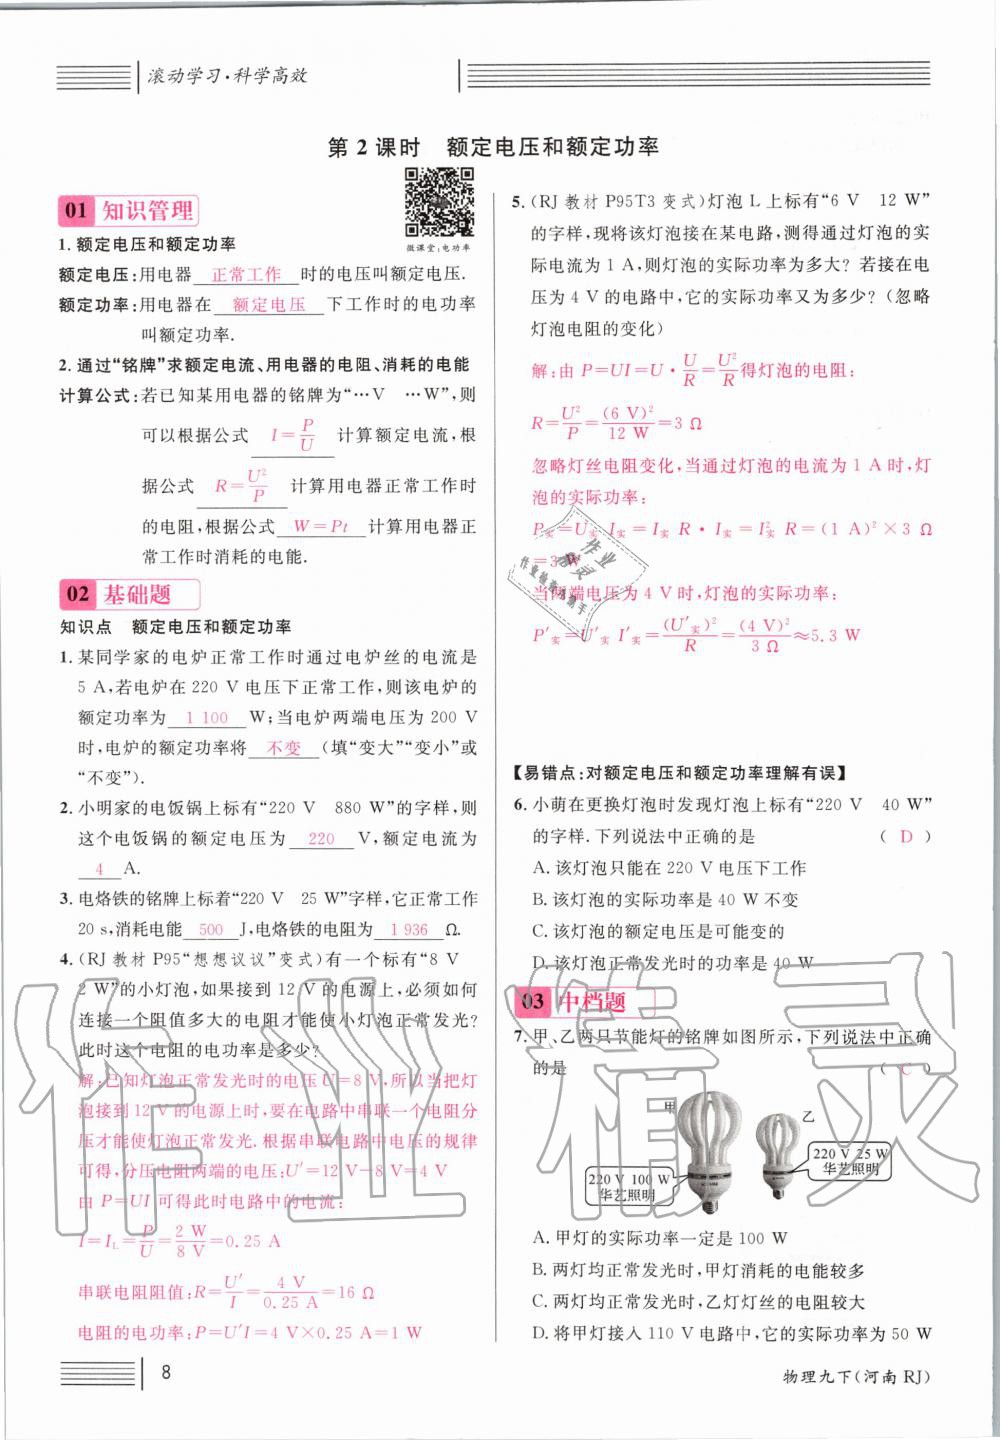 滚动学习·科学高效
第 2 课时　额定电压和额定功率
01 知识管理
微课堂:电功率
1. 额定电压和额定功率
额定电压:用电器 正常工作 时的电压叫额定电压.
额定功率:用电器在 额定电压 下工作时的电功率
叫额定功率.
2. 通过“铭牌”求额定电流、用电器的电阻、消耗的电能
计算公式:若已知某用电器的铭牌为“…V　…W”,则
可以根据公式 I=P/U 计算额定电流,根
据公式 R=U²/P 计算用电器正常工作时
的电阻,根据公式 W=Pt 计算用电器正
常工作时消耗的电能.
02 基础题
知识点　额定电压和额定功率
1. 某同学家的电炉正常工作时通过电炉丝的电流是
5 A,若电炉在 220 V 电压下正常工作,则该电炉的
额定功率为 1 100 W;当电炉两端电压为 200 V
时,电炉的额定功率将 不变 (填“变大”“变小”或
“不变”).
2. 小明家的电饭锅上标有“220 V　880 W”的字样,则
这个电饭锅的额定电压为 220 V,额定电流为
4 A.
3. 电烙铁的铭牌上标着“220 V　25 W”字样,它正常工作
20 s,消耗电能 500 J,电烙铁的电阻为 1 936 Ω.
4. (RJ 教材 P95“想想议议”变式)有一个标有“8 V
2 W”的小灯泡,如果接到 12 V 的电源上,必须如何
连接一个阻值多大的电阻才能使小灯泡正常发光?
此时这个电阻的电功率是多少?
解:已知灯泡正常发光时的电压 U=8 V,所以当把灯
泡接到 12 V 的电源上时,要在电路中串联一个电阻分
压才能使灯泡正常发光.根据串联电路中电压的规律
可得,分压电阻两端的电压:U′=12 V-8 V=4 V
由 P=UI 可得此时电路中的电流:
I=I_L=P/U=2 W/8 V=0.25 A
串联电阻阻值:R=U′/I=4 V/0.25 A=16 Ω
电阻的电功率:P=U′I=4 V×0.25 A=1 W
5. (RJ 教材 P95T3 变式)灯泡 L 上标有“6 V　12 W”
的字样,现将该灯泡接在某电路,测得通过灯泡的实
际电流为 1 A,则灯泡的实际功率为多大? 若接在电
压为 4 V 的电路中,它的实际功率又为多少?(忽略
灯泡电阻的变化)
解:由 P=UI=U·U/R=U²/R得灯泡的电阻:
R=U²/P=(6 V)²/12 W=3 Ω
忽略灯丝电阻变化,当通过灯泡的电流为 1 A 时,灯
泡的实际功率:
P实=U实 I实=I实 R·I实=I²实 R=(1 A)²×3 Ω
=3 W
当两端电压为 4 V 时,灯泡的实际功率:
P′实=U′实 I′实=(U′实)²/R=(4 V)²/3 Ω≈5.3 W
【易错点:对额定电压和额定功率理解有误】
6. 小萌在更换灯泡时发现灯泡上标有“220 V　40 W”
的字样.下列说法中正确的是 ( D )
A. 该灯泡只能在 220 V 电压下工作
B. 该灯泡的实际功率是 40 W 不变
C. 该灯泡的额定电压是可能变的
D. 该灯泡正常工作时的功率是 40 W
03 中档题
7. 甲、乙两只节能灯的铭牌如图所示,下列说法中正确
的是 ( C )
甲
乙
220 V 100 W
华艺照明
220 V 25 W
华艺照明
A. 甲灯的实际功率一定是 100 W
B. 两灯均正常发光时,甲灯消耗的电能较多
C. 两灯均正常发光时,乙灯灯丝的电阻较大
D. 将甲灯接入 110 V 电路中,它的实际功率为 50 W
8
物理九下(河南 RJ)
作业精灵